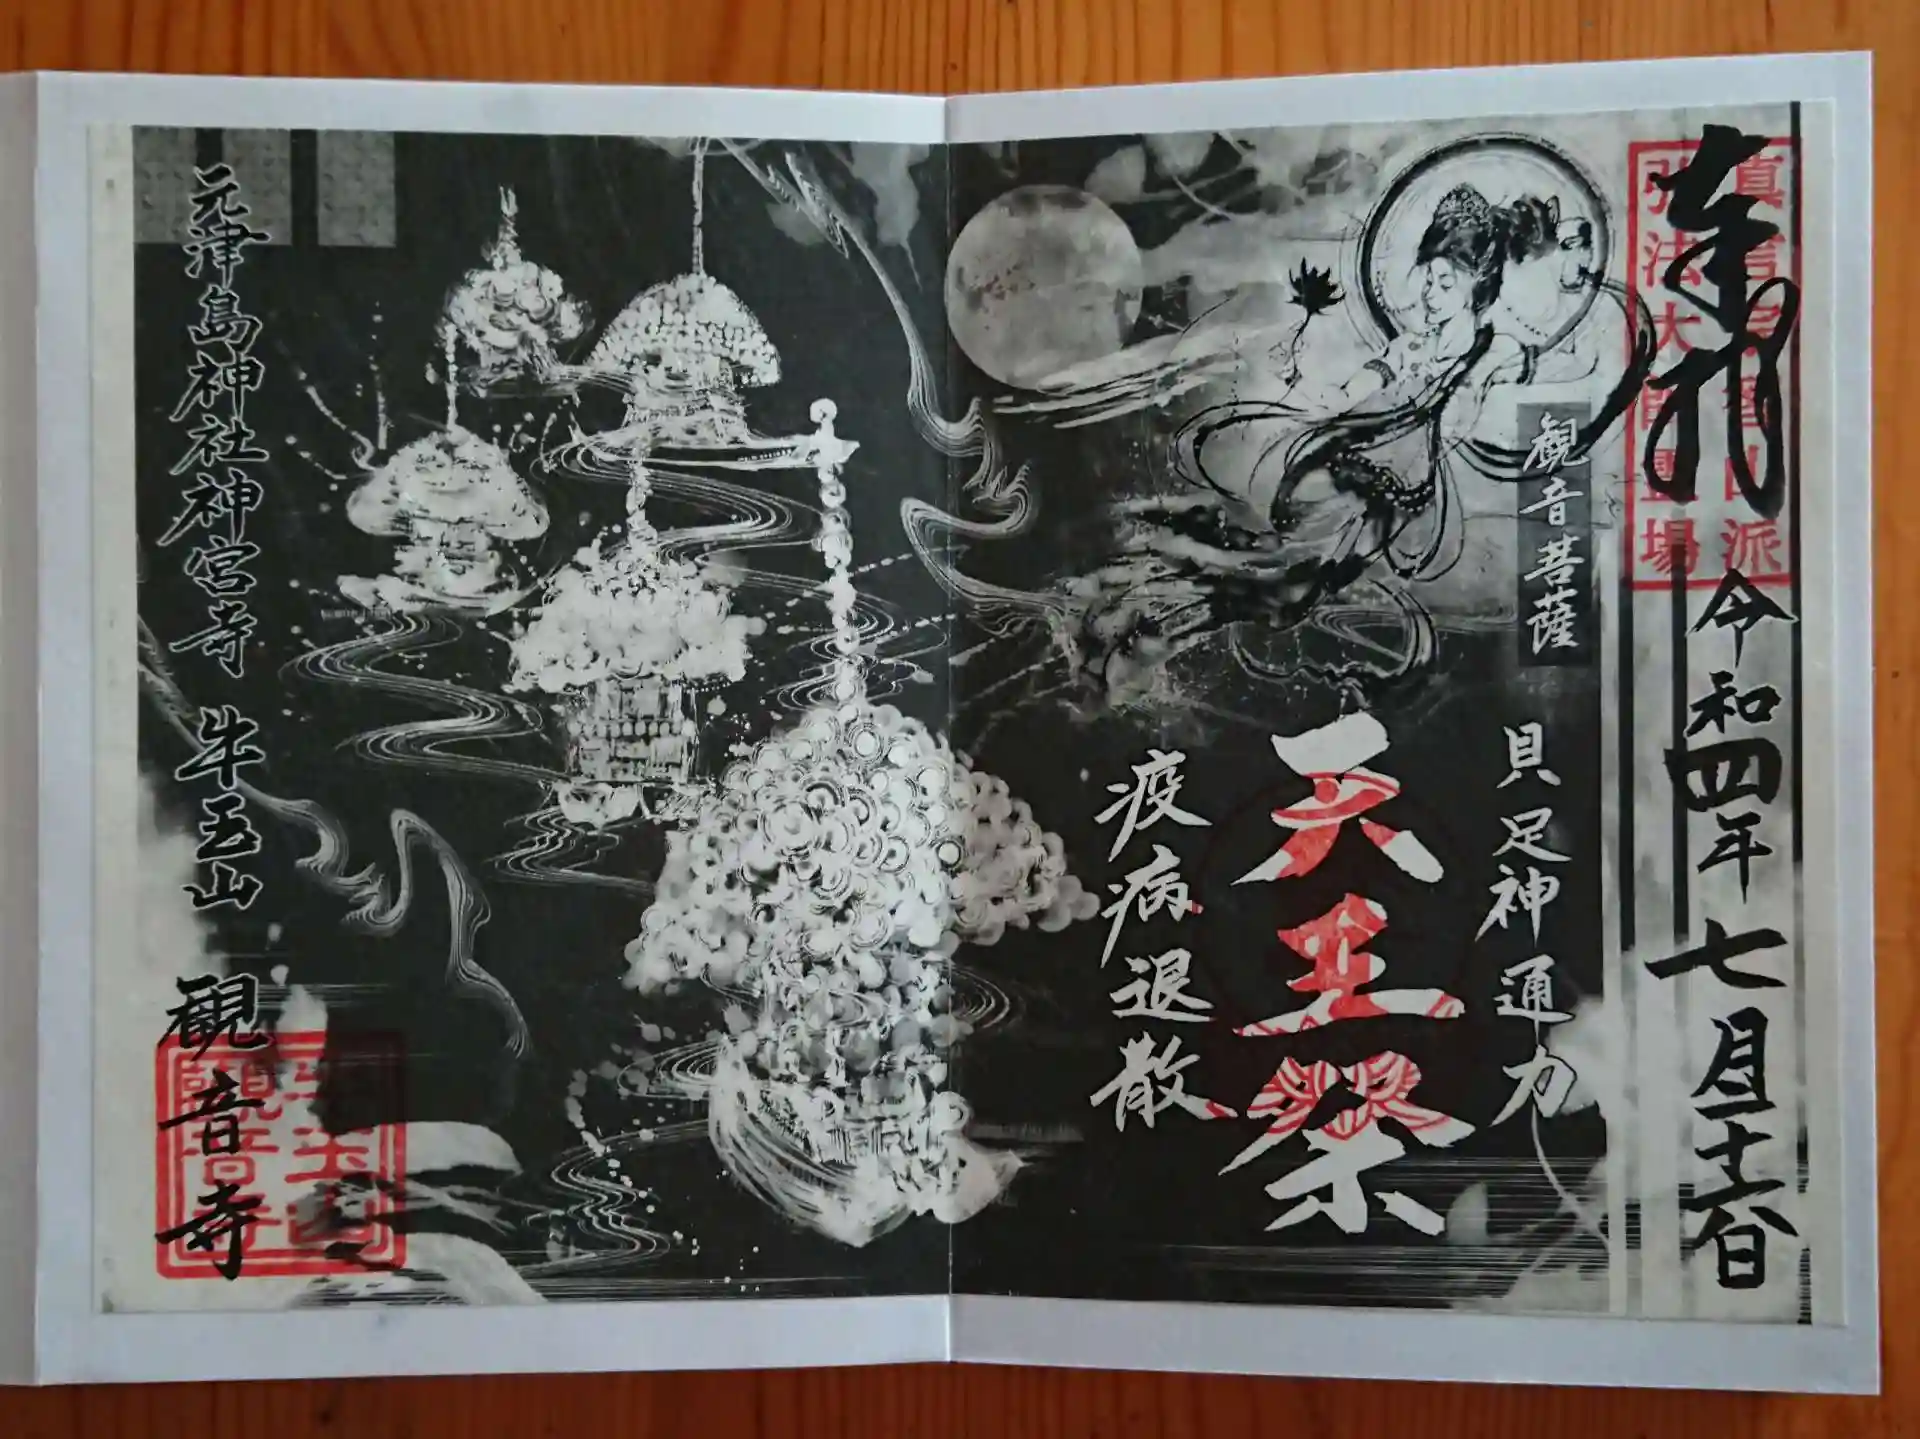 奉拝
令和四年七月二十六日
真言宗醍醐派
弘法大師霊場
観音菩薩
具足神通力
天王祭
疫病退散
元津島神社神宮寺 牛玉山 観音寺
牛玉山
観音寺